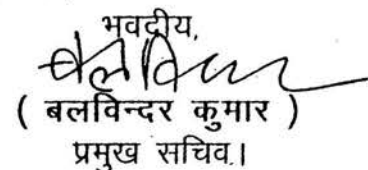 भवदीय,
( बलविन्दर कुमार )
प्रमुख सचिव।